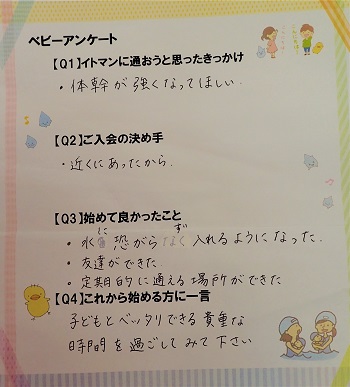 ベビーアンケート
【Q1】イトマンに通おうと思ったきっかけ
・体幹が強くなってほしい.
【Q2】ご入会の決め手
・近くにあったから.
【Q3】始めて良かったこと
・水に恐がらず入れるようになった.
・友達ができた.
・定期的に通える場所ができた
【Q4】これから始める方に一言
子どもとベッタリできる貴重な
時間を過ごしてみて下さい